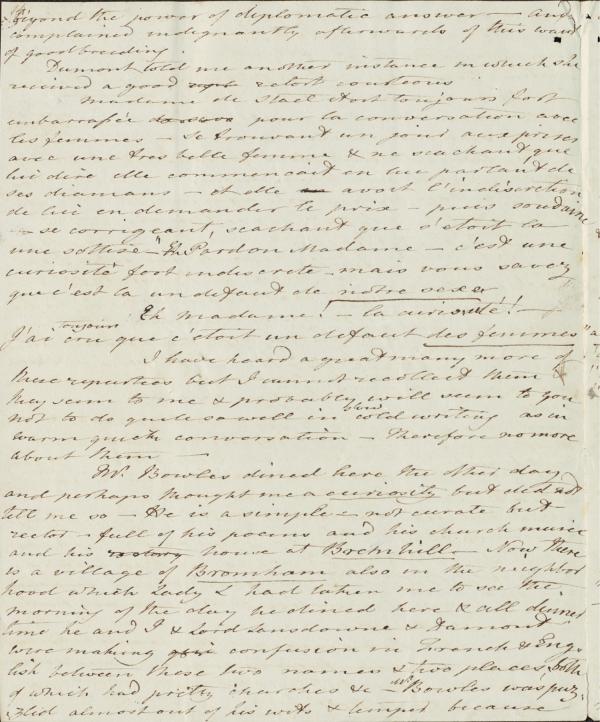 beyond the power of diplomatic answer — and
complained indignantly afterwards of this want
of good breeding.
Dumont told me another instance in which she
received a good retort courteous
Madame de Stael etoit toujours fort
embarrassée pour la conversation avec
les femmes — Se trouvant un jour aux prises
avec une tres belle femme & ne scachant que
lui dire elle commencait en lui parlant de
ses diamans — et elle avoit l'indiscretion
de lui en demander le prix — puis soudaine
— se corrigeant, scachant que s'etoit la
une sottise — "Ah Pardon Madame — c'est une
curiosité fort indiscrete — mais vous savez
que c'est la un defaut de notre sexe
Eh madame! — la curiosité! —
J'ai toujours cru que c'etoit un defaut des femmes"
I have heard a great many more of
these repartees but I cannot recollect them &
they seem to me & probably will seem to you
not to do quite so well in slow cold writing as in
warm quick conversation — Therefore no more
about them —
Mr. Bowles dined here the other day
and perhaps thought me a curiosity but did not
tell me so — He is a simple — not curate but
rector — full of his poems and his church music
and his rectory house at Bremhill — Now there
is a village of Bromham also in the neighbor
hood which Lady L had taken me to see the
morning of the day he dined here & all dinner
time he and I & Lord Lansdowne & Dumont
were making confusion in French & Eng
lish between these two names & two places both
of which had pretty churches &c — Mr. Bowles was puz
zled almost out of his wits & temper because